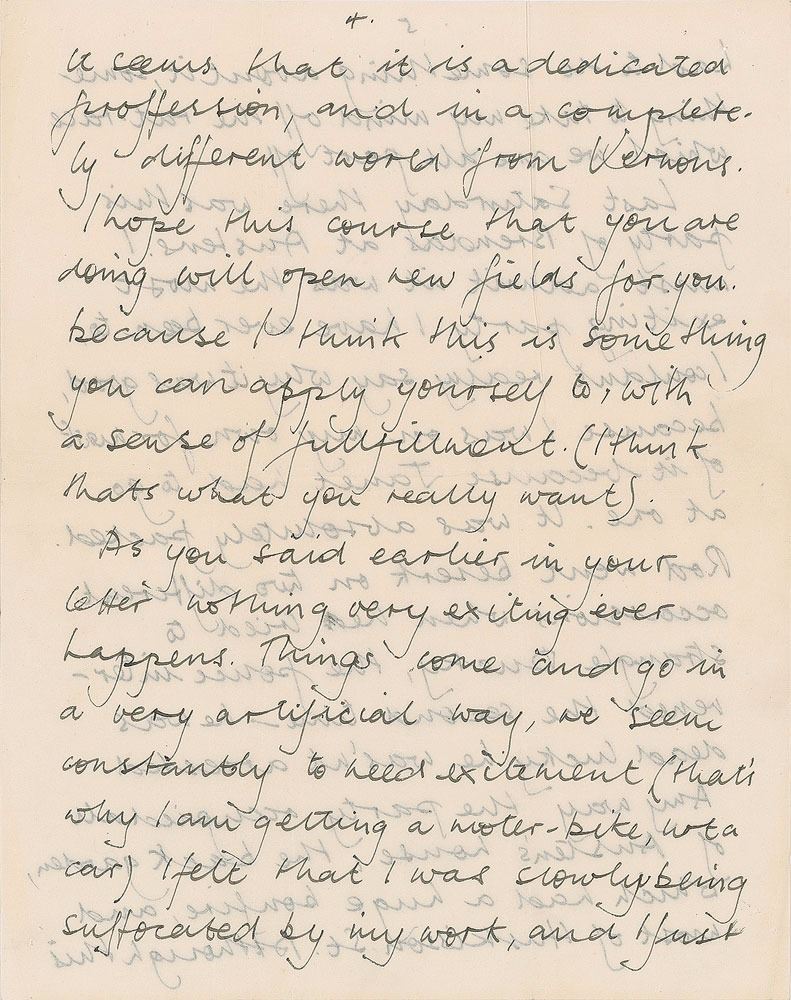 4.
It seems that it is a dedicated
proffession, and in a complete-
ly different world from Vernons.
I hope this course that you are
doing will open new fields for you.
because I think this is something
you can apply yourself to, with
a sense of fullfillment. (I think
thats what you really want).
As you said earlier in your
letter nothing very exiting ever
happens. Things come and go in
a very artificial way, we seem
constantly to need excitement (that's
why I am getting a moter-bike, not a
car) I felt that I was slowly being
suffocated by my work, and I just